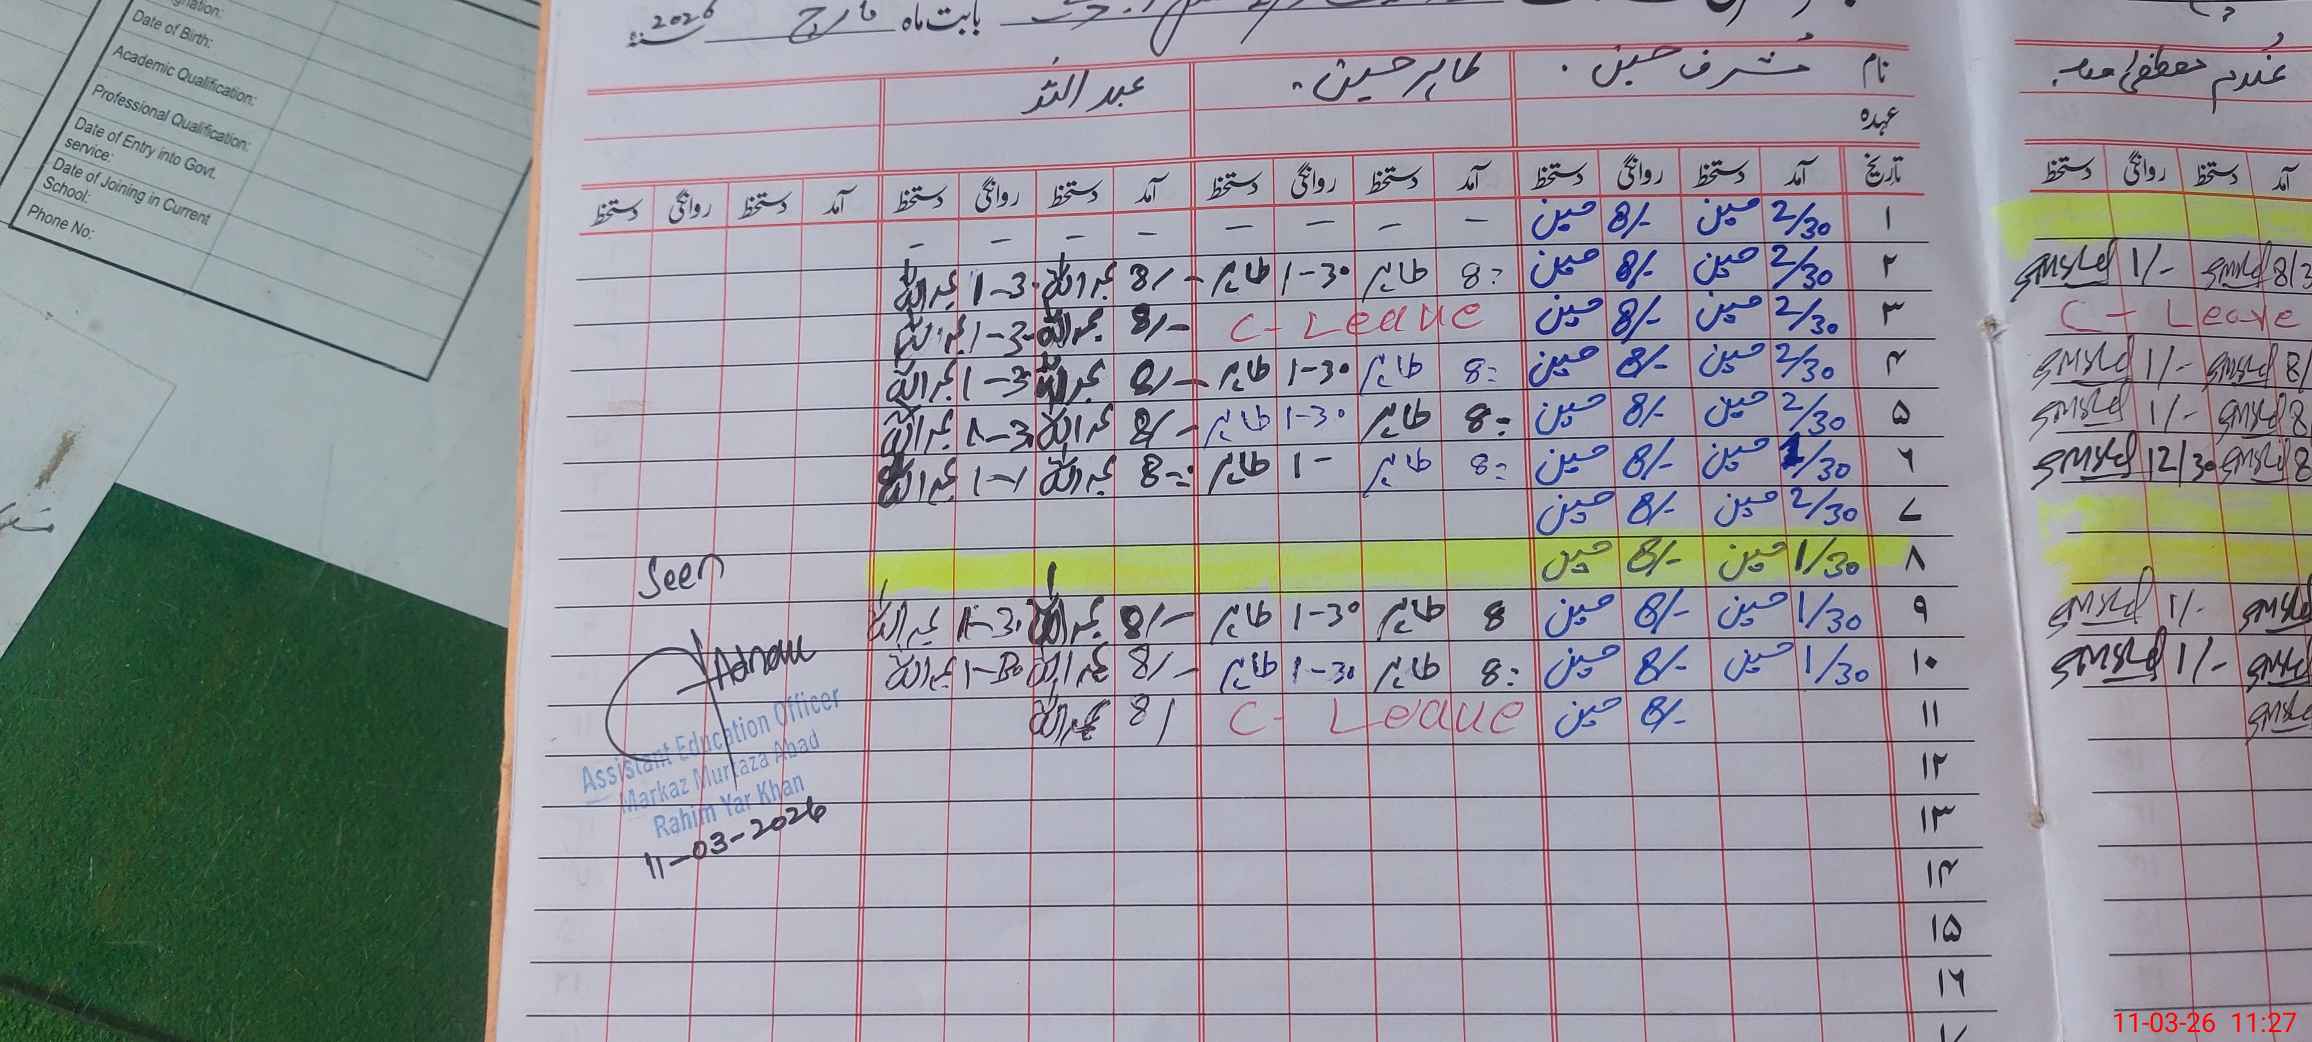 Date of Birth:
Academic Qualification:
Professional Qualification:
Date of Entry into Govt.
service:
Date of Joining in Current
School:
Phone No:
بابت ماہ مارچ 2026
نام مُشرف حسین طاہر حسین عبد اللہ
عہدہ
تاریخ آمد دستخط روانگی دستخط آمد دستخط روانگی دستخط آمد دستخط روانگی دستخط آمد دستخط روانگی دستخط
۱ 2/30 حسین 8/- حسین - - - - - - - -
۲ 2/30 حسین 8/- حسین 8: طاہر 1-30 طاہر 8/- عبداللہ 1-3 عبداللہ
۳ 2/30 حسین 8/- حسین C - Leave 8/- عبداللہ 1-3 عبداللہ
۴ 2/30 حسین 8/- حسین 8: طاہر 1-30 طاہر 8/- عبداللہ 1-3 عبداللہ
۵ 2/30 حسین 8/- حسین 8: طاہر 1-30 طاہر 8/- عبداللہ 1-3 عبداللہ
۶ 1/30 حسین 8/- حسین 8: طاہر 1- طاہر 8-: عبداللہ 1-/ عبداللہ
۷ 2/30 حسین 8/- حسین
۸ 1/30 حسین 8/- حسین
۹ 1/30 حسین 8/- حسین 8 طاہر 1-30 طاہر 8/- عبداللہ 1-3 عبداللہ
۱۰ 1/30 حسین 8/- حسین 8: طاہر 1-30 طاہر 8/- عبداللہ 1-30 عبداللہ
۱۱ 8/- حسین C - Leave 8/ عبداللہ
۱۲
۱۳
۱۴
۱۵
۱۶
Seen
Assistant Education Officer
Markaz Murtaza Abad
Rahim Yar Khan
11-03-2026
غلام مصطفیٰ
آمد دستخط روانگی دستخط
8/3 1/-
C - Leave
8/ 1/-
8 1/-
8 12/30
1/-
1/-
11-03-26 11:27